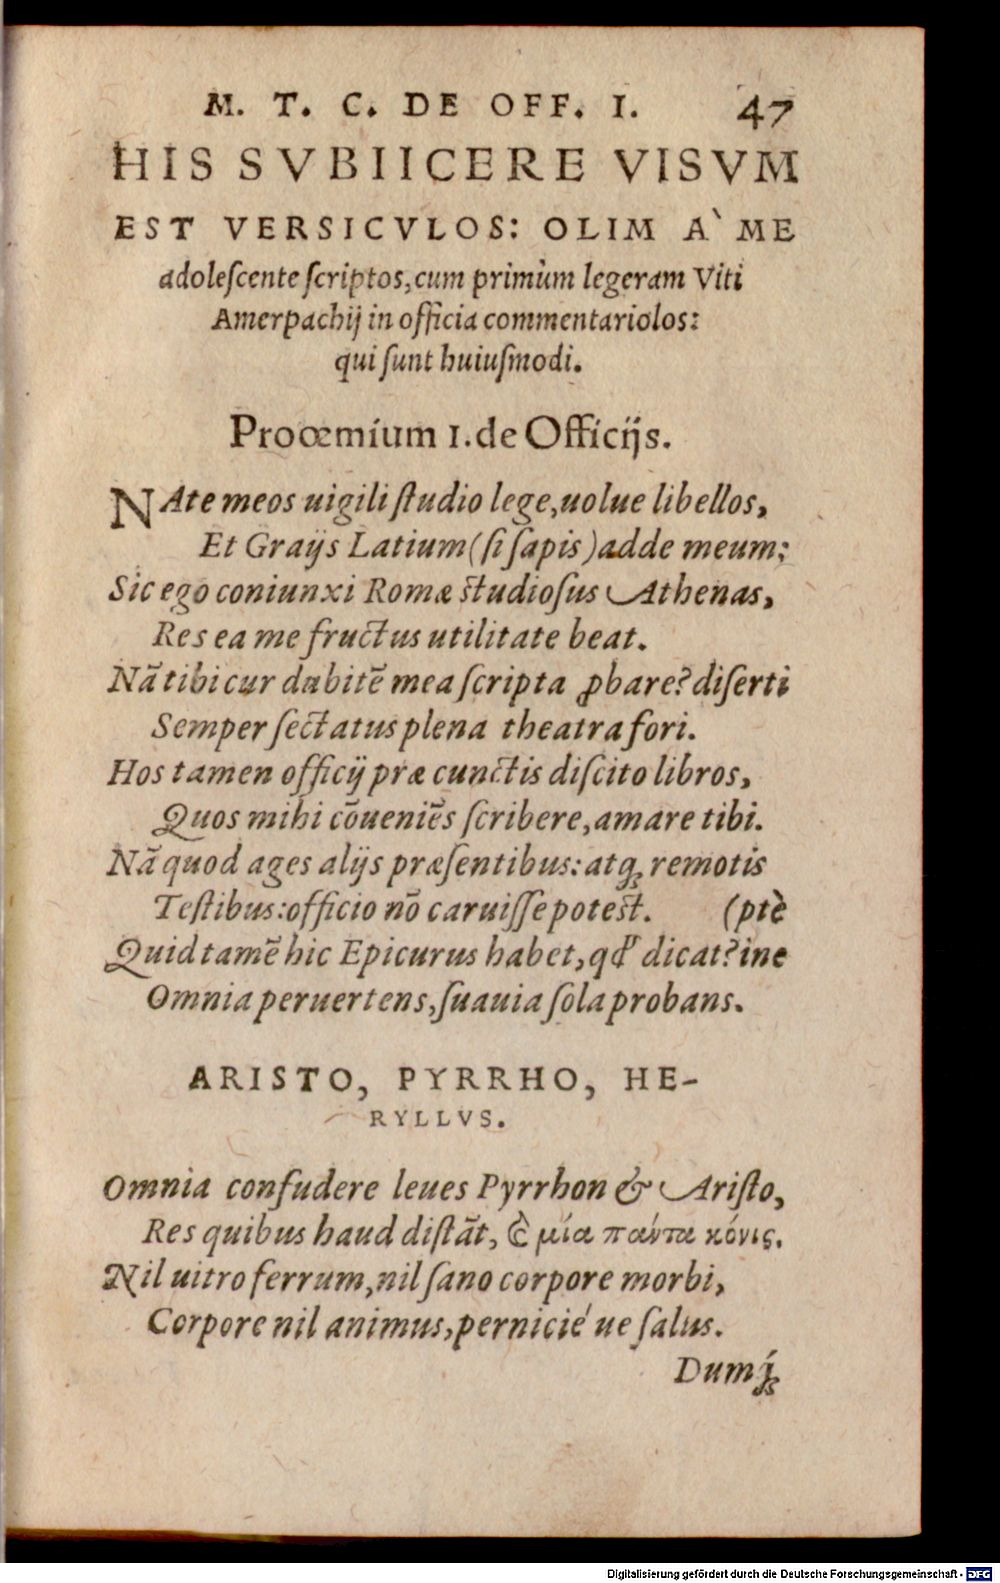 M. T. C. DE OFF. I. 47
HIS SVBIICERE VISVM
EST VERSICVLOS: OLIM A` ME
adoleſcente ſcriptos, cum primùm legeram Viti
Amerpachij in officia commentariolos:
qui ſunt huiuſmodi.
Proœmium I. de Officijs.
NAte meos uigili ſtudio lege, uolue libellos,
Et Graijs Latium (ſi ſapis) adde meum:
Sic ego coniunxi Romæ ſtudioſus Athenas,
Res ea me fructus utilitate beat.
Nã tibi cur dubitẽ mea ſcripta ꝓbare? diſerti
Semper ſectatus plena theatra fori.
Hos tamen officij præ cunctis diſcito libros,
Quos mihi cõueniẽs ſcribere, amare tibi.
Nã quod ages alijs præſentibus: atqꝫ remotis
Teſtibus: officio nõ caruiſſe poteſt. (ptè
Quid tamẽ hic Epicurus habet, qđ dicat? ine
Omnia peruertens, ſuauia ſola probans.
ARISTO, PYRRHO, HE-
RYLLVS.
Omnia confudere leues Pyrrhon & Ariſto,
Res quibus haud diſtãt, ἓ μία πάντα κόνις.
Nil uitro ferrum, nil ſano corpore morbi,
Corpore nil animus, pernicié ue ſalus.
Dumqꝫ
Digitalisierung gefördert durch die Deutsche Forschungsgemeinschaft - DFG